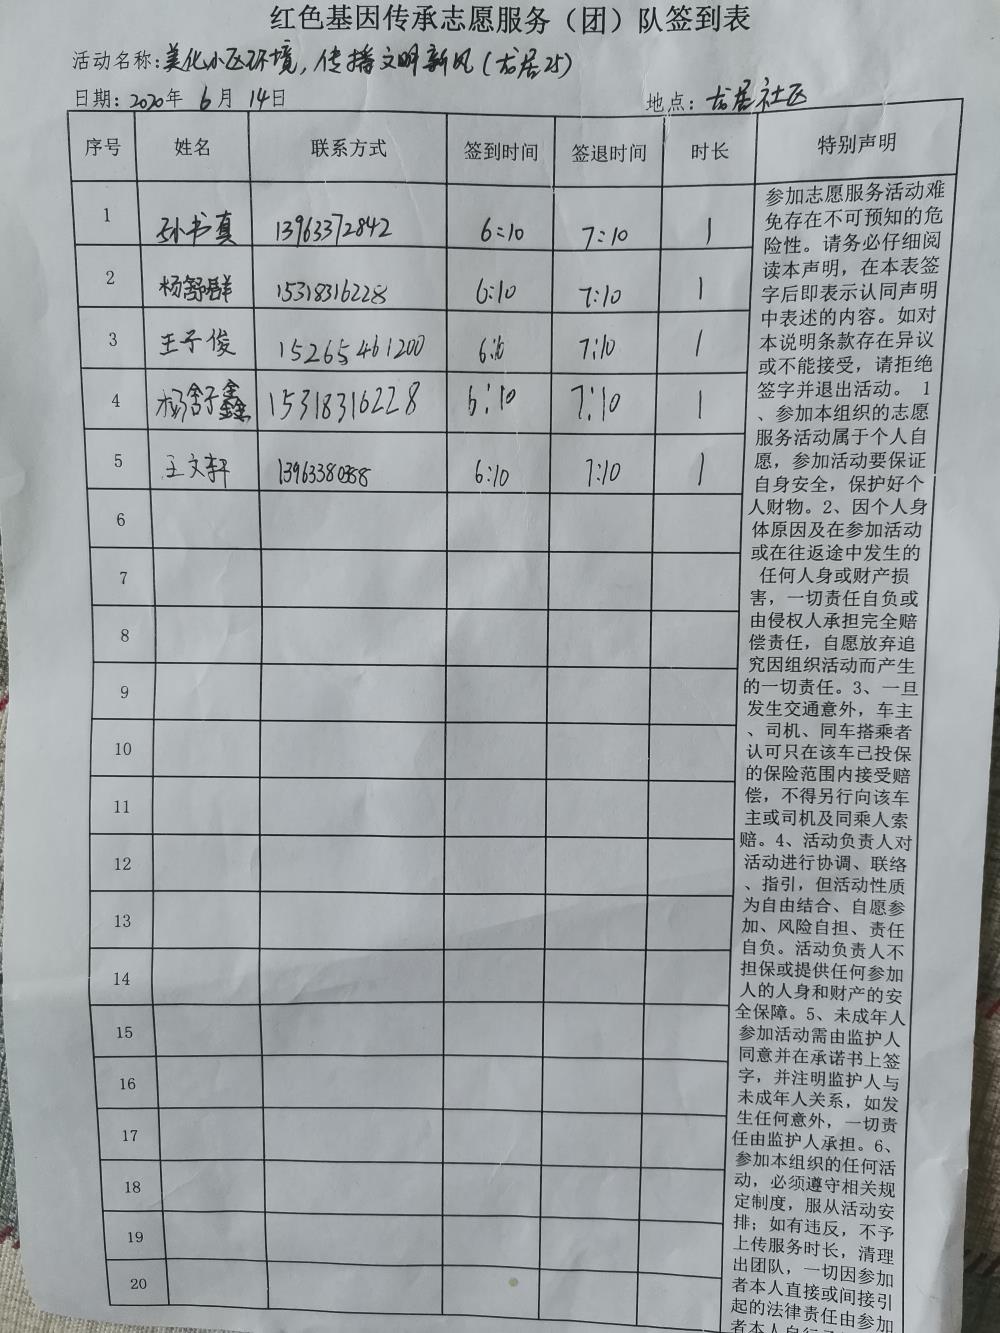 红色基因传承志愿服务（团）队签到表
活动名称：美化小区环境，传播文明新风（古居25）
日期：2020年 6月 14日
地点：古居社区
序号 姓名 联系方式 签到时间 签退时间 时长 特别声明
1 孙书真 13963372842 6:10 7:10 1
2 杨舒群 15318316228 6:10 7:10 1
3 王子俊 15265461200 6:10 7:10 1
4 杨舒鑫 15318316228 6:10 7:10 1
5 王文轩 13963380388 6:10 7:10 1
6
7
8
9
10
11
12
13
14
15
16
17
18
19
20
参加志愿服务活动难
免存在不可预知的危
险性。请务必仔细阅
读本声明，在本表签
字后即表示认同声明
中表述的内容。如对
本说明条款存在异议
或不能接受，请拒绝
签字并退出活动。 1
、参加本组织的志愿
服务活动属于个人自
愿，参加活动要保证
自身安全，保护好个
人财物。2、因个人身
体原因及在参加活动
或在往返途中发生的
任何人身或财产损
害，一切责任自负或
由侵权人承担完全赔
偿责任，自愿放弃追
究因组织活动而产生
的一切责任。3、一旦
发生交通意外，车主
、司机、同车搭乘者
认可只在该车已投保
的保险范围内接受赔
偿，不得另行向该车
主或司机及同乘人索
赔。4、活动负责人对
活动进行协调、联络
、指引，但活动性质
为自由结合、自愿参
加、风险自担、责任
自负。活动负责人不
担保或提供任何参加
人的人身和财产的安
全保障。5、未成年人
参加活动需由监护人
同意并在承诺书上签
字，并注明监护人与
未成年人关系，如发
生任何意外，一切责
任由监护人承担。6、
参加本组织的任何活
动，必须遵守相关规
定制度，服从活动安
排；如有违反，不予
上传服务时长，清理
出团队，一切因参加
者本人直接或间接引
起的法律责任由参加
者本人自行